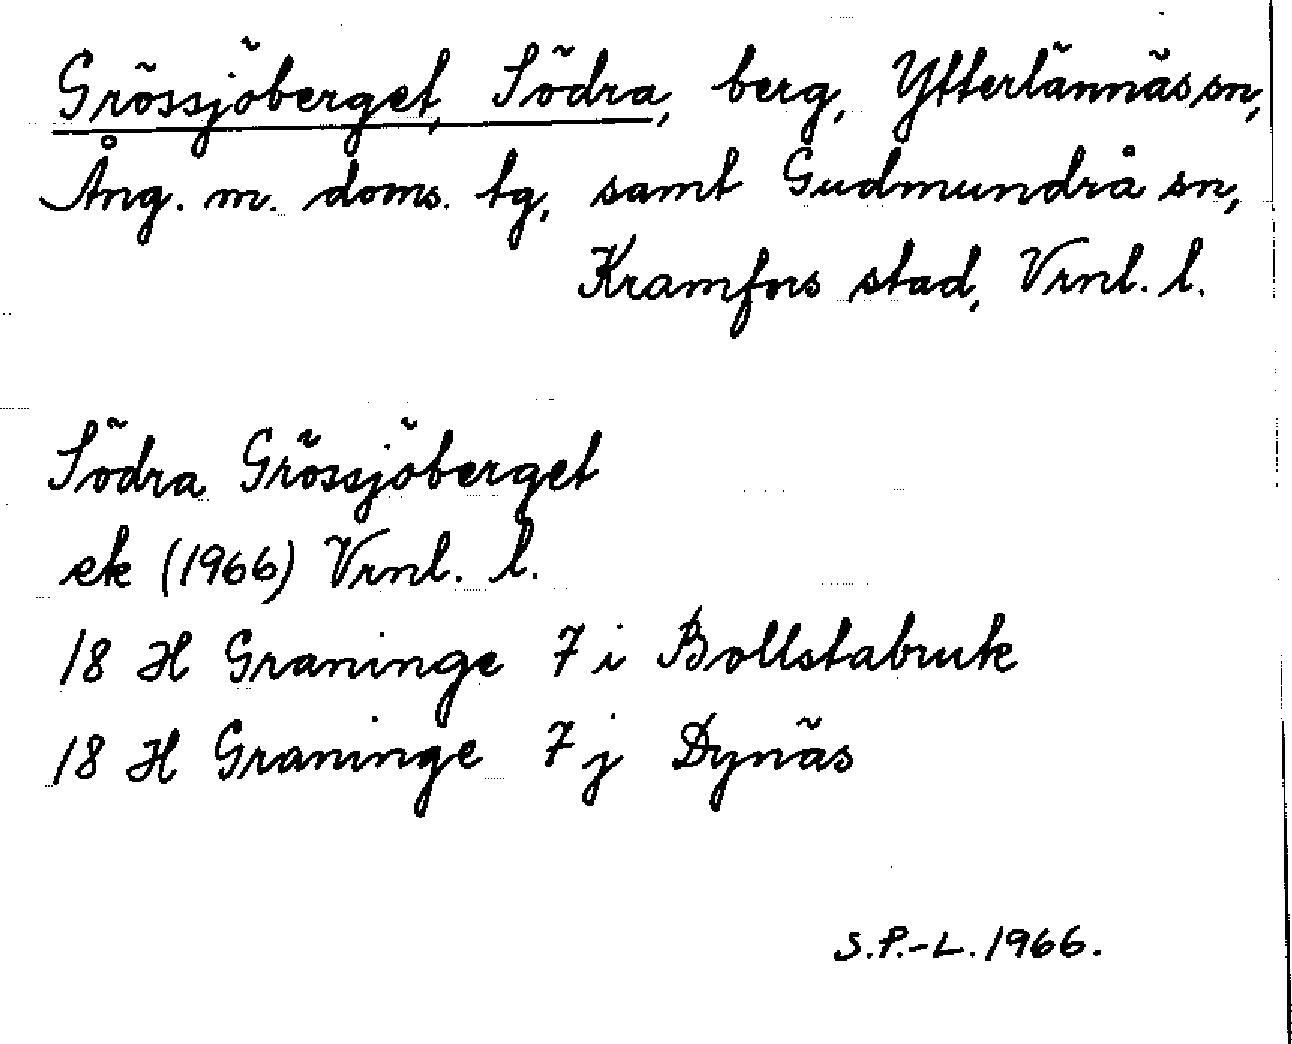 Grössjöberget, Södra, berg, Ytterlännäs sn,
Ång. m. doms. tg, samt Gudmundrå sn,
Kramfors stad, Vrnl. l.
Södra Grössjöberget
ek (1966) Vrnl. l.
18 H Graninge 7 i Bollstabruk
18 H Graninge 7 j Dynäs
S.P.-L. 1966.